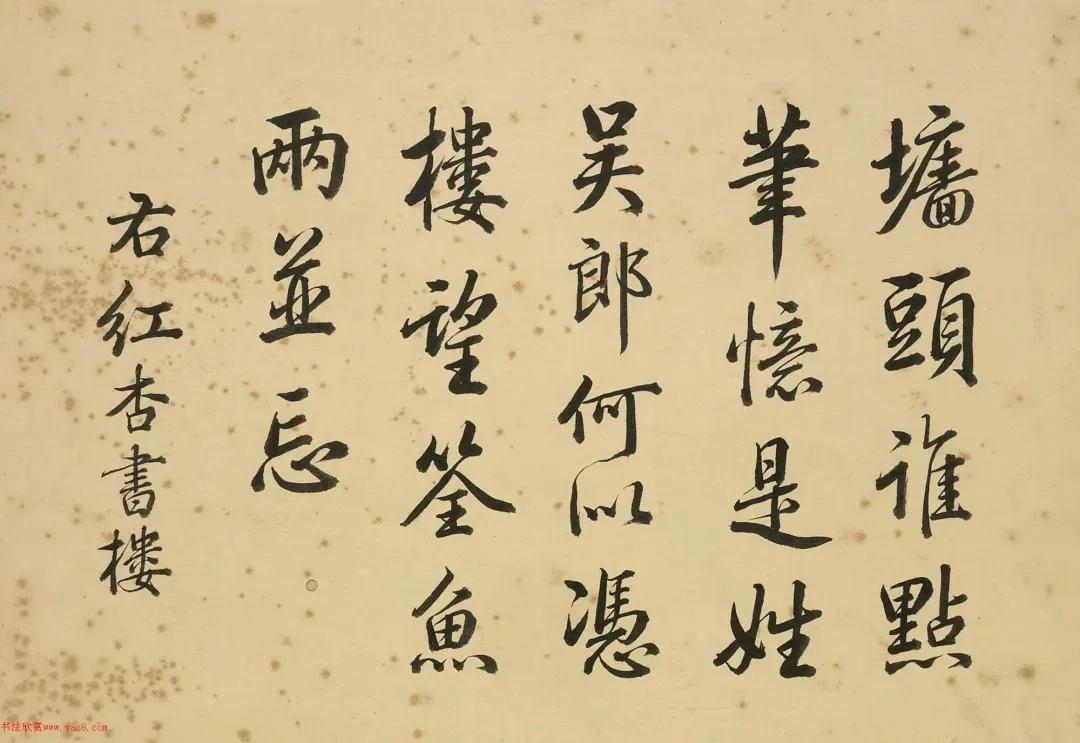 墻頭谁點
筆憶是姓
吴郎何以憑
樓望筌魚
兩並忘
右紅杏書樓
书法欣赏www.yac8.com